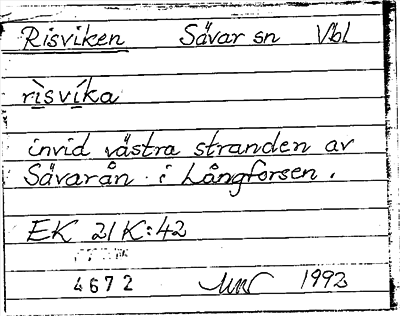 Risviken Sävar sn Vbl
rìsvíka
invid västra stranden av
Sävarån i Långforsen.
EK 21K:42
4672 1992